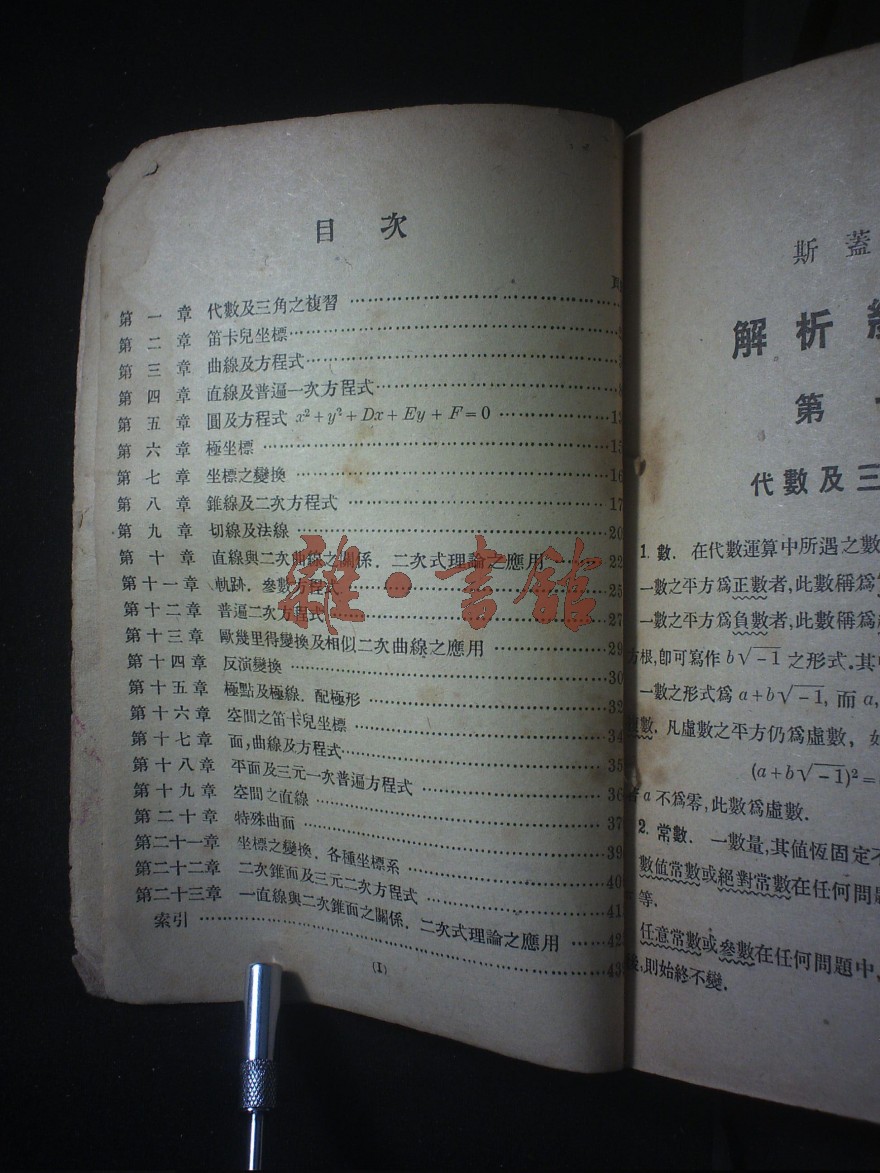 目 次
第一章 代數及三角之複習
第二章 笛卡兒坐標
第三章 曲線及方程式
第四章 直線及普遍一次方程式
第五章 圓及方程式 x²+y²+Dx+Ey+F=0 …… 1
第六章 極坐標 …… 1
第七章 坐標之變換 …… 16
第八章 錐線及二次方程式 …… 17
第九章 切線及法線 …… 20
第十章 直線與二次曲線之關係．二次式理論之應用 …… 22
第十一章 軌跡．叄數方程式 …… 25
第十二章 普遍二次方程式 …… 27
第十三章 歐幾里得變換及相似二次曲線之應用 …… 29
第十四章 反演變換 …… 30
第十五章 極點及極線．配極形 …… 32
第十六章 空間之笛卡兒坐標 …… 34
第十七章 面，曲線及方程式 …… 35
第十八章 平面及三元一次普遍方程式 …… 36
第十九章 空間之直線 …… 37
第二十章 特殊曲面 …… 39
第二十一章 坐標之變換．各種坐標系 …… 40
第二十二章 二次錐面及三元二次方程式 …… 41
第二十三章 一直線與二次錐面之關係．二次式理論之應用 …… 42
索引 …… 43
(I)
雜·書館
斯 蓋
解 析
第
代數及三
1. 數．在代數運算中所遇之數
一數之平方爲正數者，此數稱爲
一數之平方爲負數者，此數稱爲
方根，卽可寫作 b√−1 之形式．其
一數之形式爲 a+b√−1，而 a,
數，凡虛數之平方仍爲虛數，如
(a+b√−1)²=
a 不爲零，此數爲虛數．
2. 常數．一數量，其值恆固定不
數值常數或絕對常數在任何問題
等．
任意常數或叄數在任何問題中，
後，則始終不變．